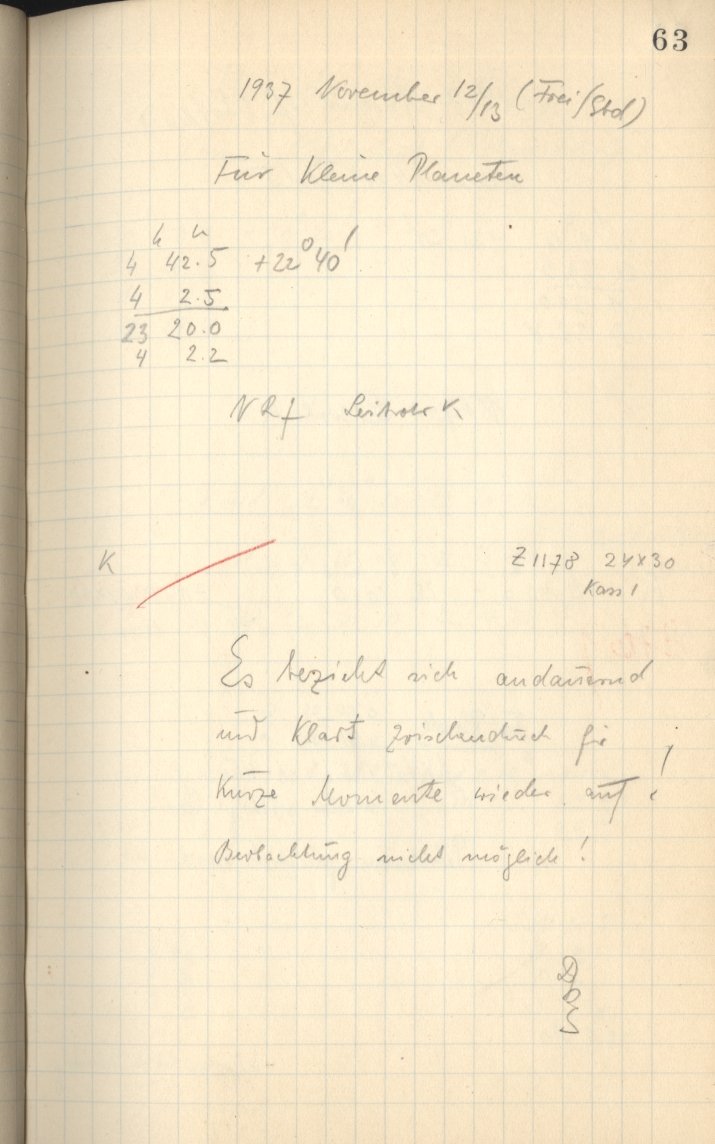 63
1937 November 12/13 (Frei/Sbd)
Für Kleine Planeten
h m
4 42.5 +22° 40'
4 2.5
23 20.0
4 2.2
NRf Leitrohr K
K
Z 1178 24x30
Kass 1
Es bezieht sich andauernd
und klart zwischendurch für
kurze Momente wieder auf!
Beobachtung nicht möglich!